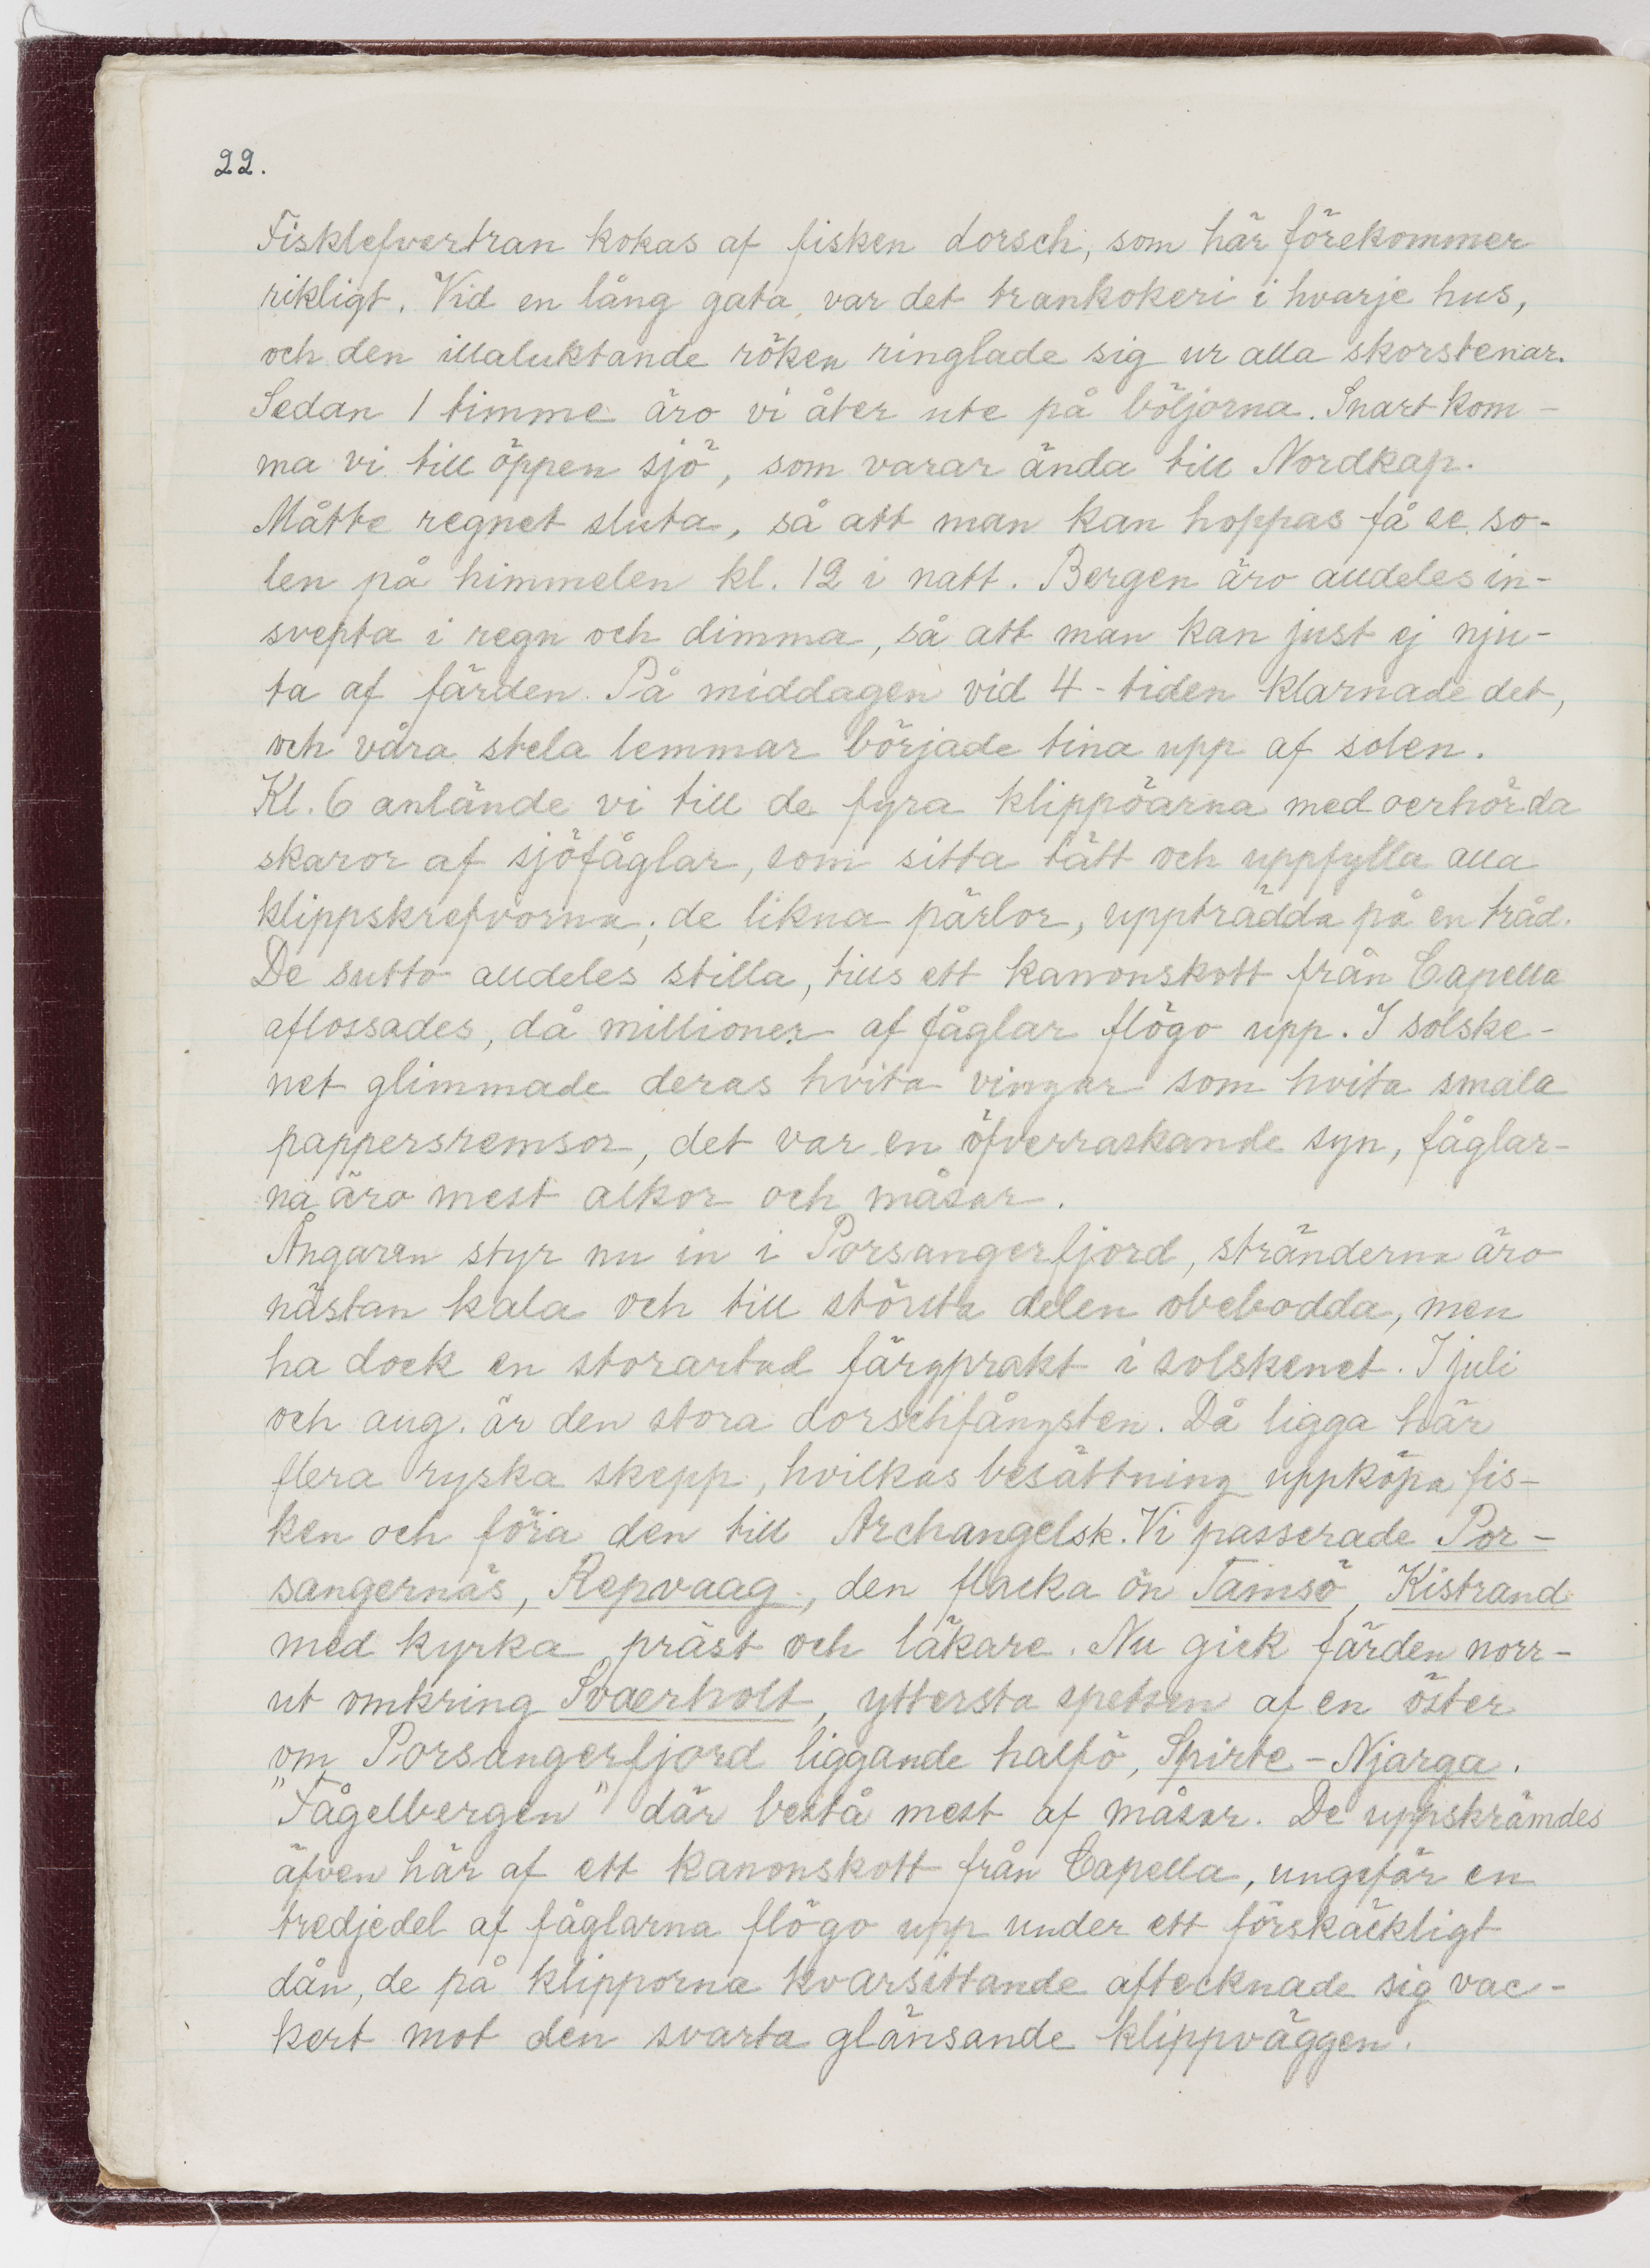 22.
Fisklefvertran kokas af fisken dorsch, som här förekommer
rikligt. Vid en lång gata, var det trankokeri i hvarje hus,
och den illaluktande röken ringlade sig ur alla skorstenar.
Sedan 1 timme äro vi åter ute på böljorna. Snart kom-
ma vi till öppen sjö, som varar ända till Nordkap.
Måtte regnet sluta, så att man kan hoppas få se so-
len på himmelen kl. 12 i natt. Bergen äro alldeles in-
svepta i regn och dimma, så att man kan just ej nju-
ta af färden. På middagen vid 4-tiden klarnade det,
och våra stela lemmar började tina upp af solen.
Kl. 6 anlände vi till de fyra klippöarna med oerhörda
skaror af sjöfåglar, som sitta tätt och uppfylla alla
klippskrefvorna; de likna pärlor, uppträdda på en tråd.
De sutto alldeles stilla, tills ett kanonskott från Capella
aflossades, då millioner af fåglar flögo upp. I solske-
net glimmade deras hvita vingar som hvita smala
pappersremsor, det var en öfverraskande syn, fåglar-
na äro mest alkor och måsar.
Ångaren styr nu in i Porsangerfjord, stränderna äro
nästan kala och till största delen obebodda, men
ha dock en storartad färgprakt i solskenet. I juli
och aug. är den stora dorschfångsten. Då ligga här
flera ryska skepp, hvilkas besättning uppköpa fis-
ken och föra den till Archangelsk. Vi passerade Por-
sangernäs, Repvaag, den flacka ön Tamsö, Kistrand
med kyrka präst och läkare. Nu gick färden norr-
ut omkring Svaerholt, yttersta spetsen af en öster
om Porsangerfjord liggande halfö, Spirte-Njarga.
"Fågelbergen" där bestå mest af måsar. De uppskrämdes
äfven här af ett kanonskott från Capella, ungefär en
tredjedel af fåglarna flögo upp under ett förskäckligt
dån, de på klipporna kvarsittande aftecknade sig vac-
kert mot den svarta glänsande klippväggen.